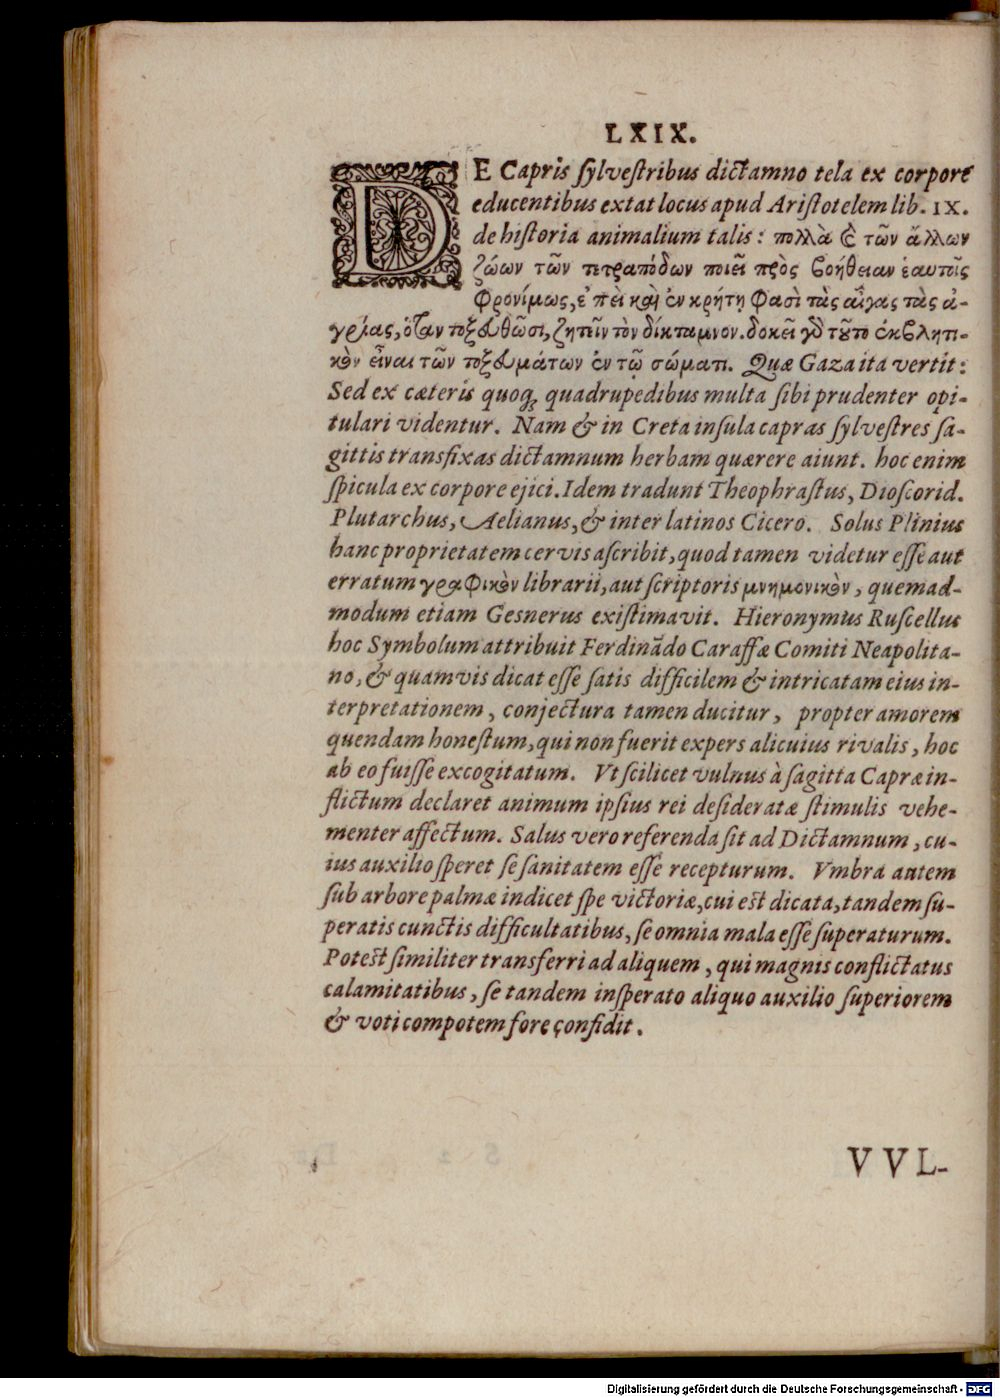 LXIX.
DE Capris ſylveſtribus dictamno tela ex corpore
educentibus extat locus apud Ariſtotelem lib. IX.
de hiſtoria animalium talis: πολλὰ ϗ̀ τῶν ἄλλων
ζώων τῶν τετραπόδων ποιεῖ πρὸς βοήθειαν ἑαυτοῖς
φρονίμως, ἐπεὶ καὶ ἐν κρήτῃ φασὶ τὰς αἶγας τὰς ἀ-
γρίας, ὅταν τοξευθῶσι, ζητεῖν τὸν δίκταμνον. δοκεῖ γὸ τοῦτο ἐκβλητι-
κὸν εἶναι τῶν τοξευμάτων ἐν τῷ σώματι. Quæ Gaza ita vertit:
Sed ex cæteris quoq; quadrupedibus multa ſibi prudenter opi-
tulari videntur. Nam & in Creta inſula capras ſylveſtres ſa-
gittis transfixas dictamnum herbam quærere aiunt. hoc enim
ſpicula ex corpore ejici. Idem tradunt Theophraſtus, Dioſcorid.
Plutarchus, Aelianus, & inter latinos Cicero. Solus Plinius
hanc proprietatem cervis aſcribit, quod tamen videtur eſſe aut
erratum γραφικὸν librarii, aut ſcriptoris μνημονικὸν, quemad-
modum etiam Gesnerus exiſtimavit. Hieronymus Ruſcellus
hoc Symbolum attribuit Ferdinādo Caraffæ Comiti Neapolita-
no, & quamvis dicat eſſe ſatis difficilem & intricatam eius in-
terpretationem, conjectura tamen ducitur, propter amorem
quendam honeſtum, qui non fuerit expers alicuius rivalis, hoc
ab eo fuiſſe excogitatum. Vt ſcilicet vulnus à ſagitta Capræ in-
flictum declaret animum ipſius rei deſideratæ ſtimulis vehe-
menter affectum. Salus vero referenda ſit ad Dictamnum, cu-
ius auxilio ſperet ſe ſanitatem eſſe recepturum. Vmbra autem
ſub arbore palmæ indicet ſpe victoriæ, cui eſt dicata, tandem ſu-
peratis cunctis difficultatibus, ſe omnia mala eſſe ſuperaturum.
Poteſt ſimiliter transferri ad aliquem, qui magnis conflictatus
calamitatibus, ſe tandem inſperato aliquo auxilio ſuperiorem
& voti compotem fore confidit.
VVL-
Digitalisierung gefördert durch die Deutsche Forschungsgemeinschaft - DFG